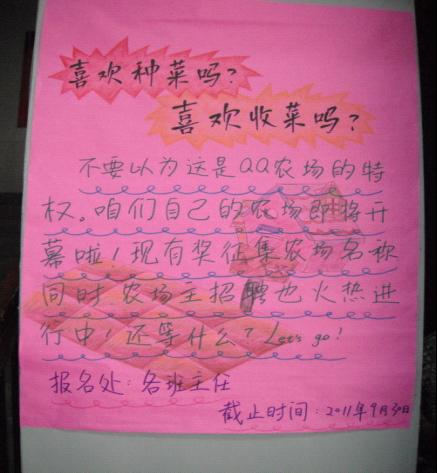 喜欢种菜吗?
喜欢收菜吗?
不要以为这是QQ农场的特
权。咱们自己的农场即将开
幕啦!现有奖征集农场名称
同时农场主招聘也火热进
行中!还等什么?Let's go!
报名处:各班主任
截止时间:2011年9月30日